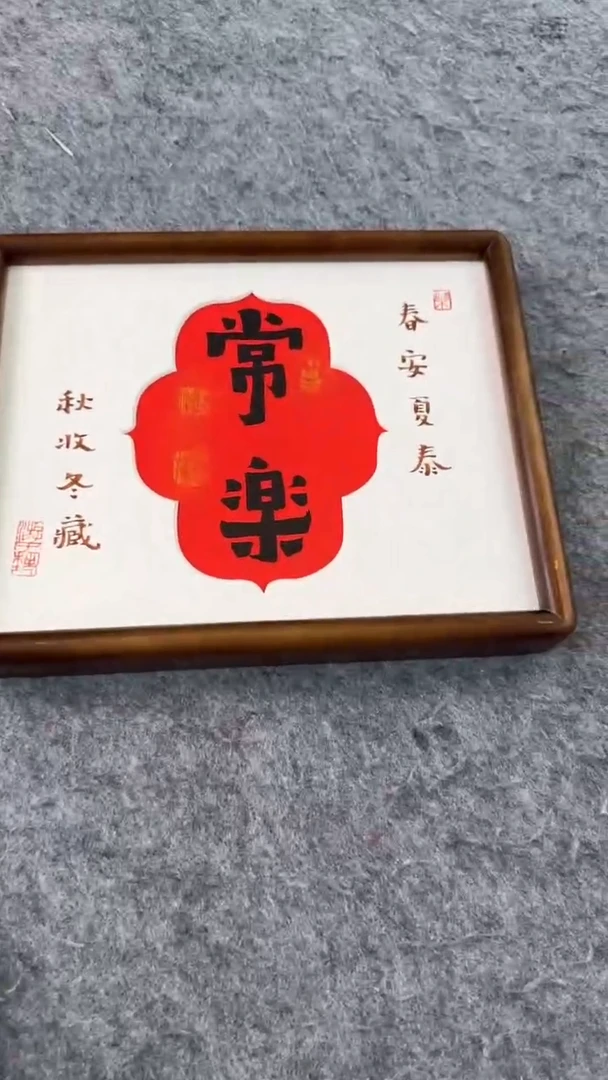 春安夏泰
常楽
秋收冬藏